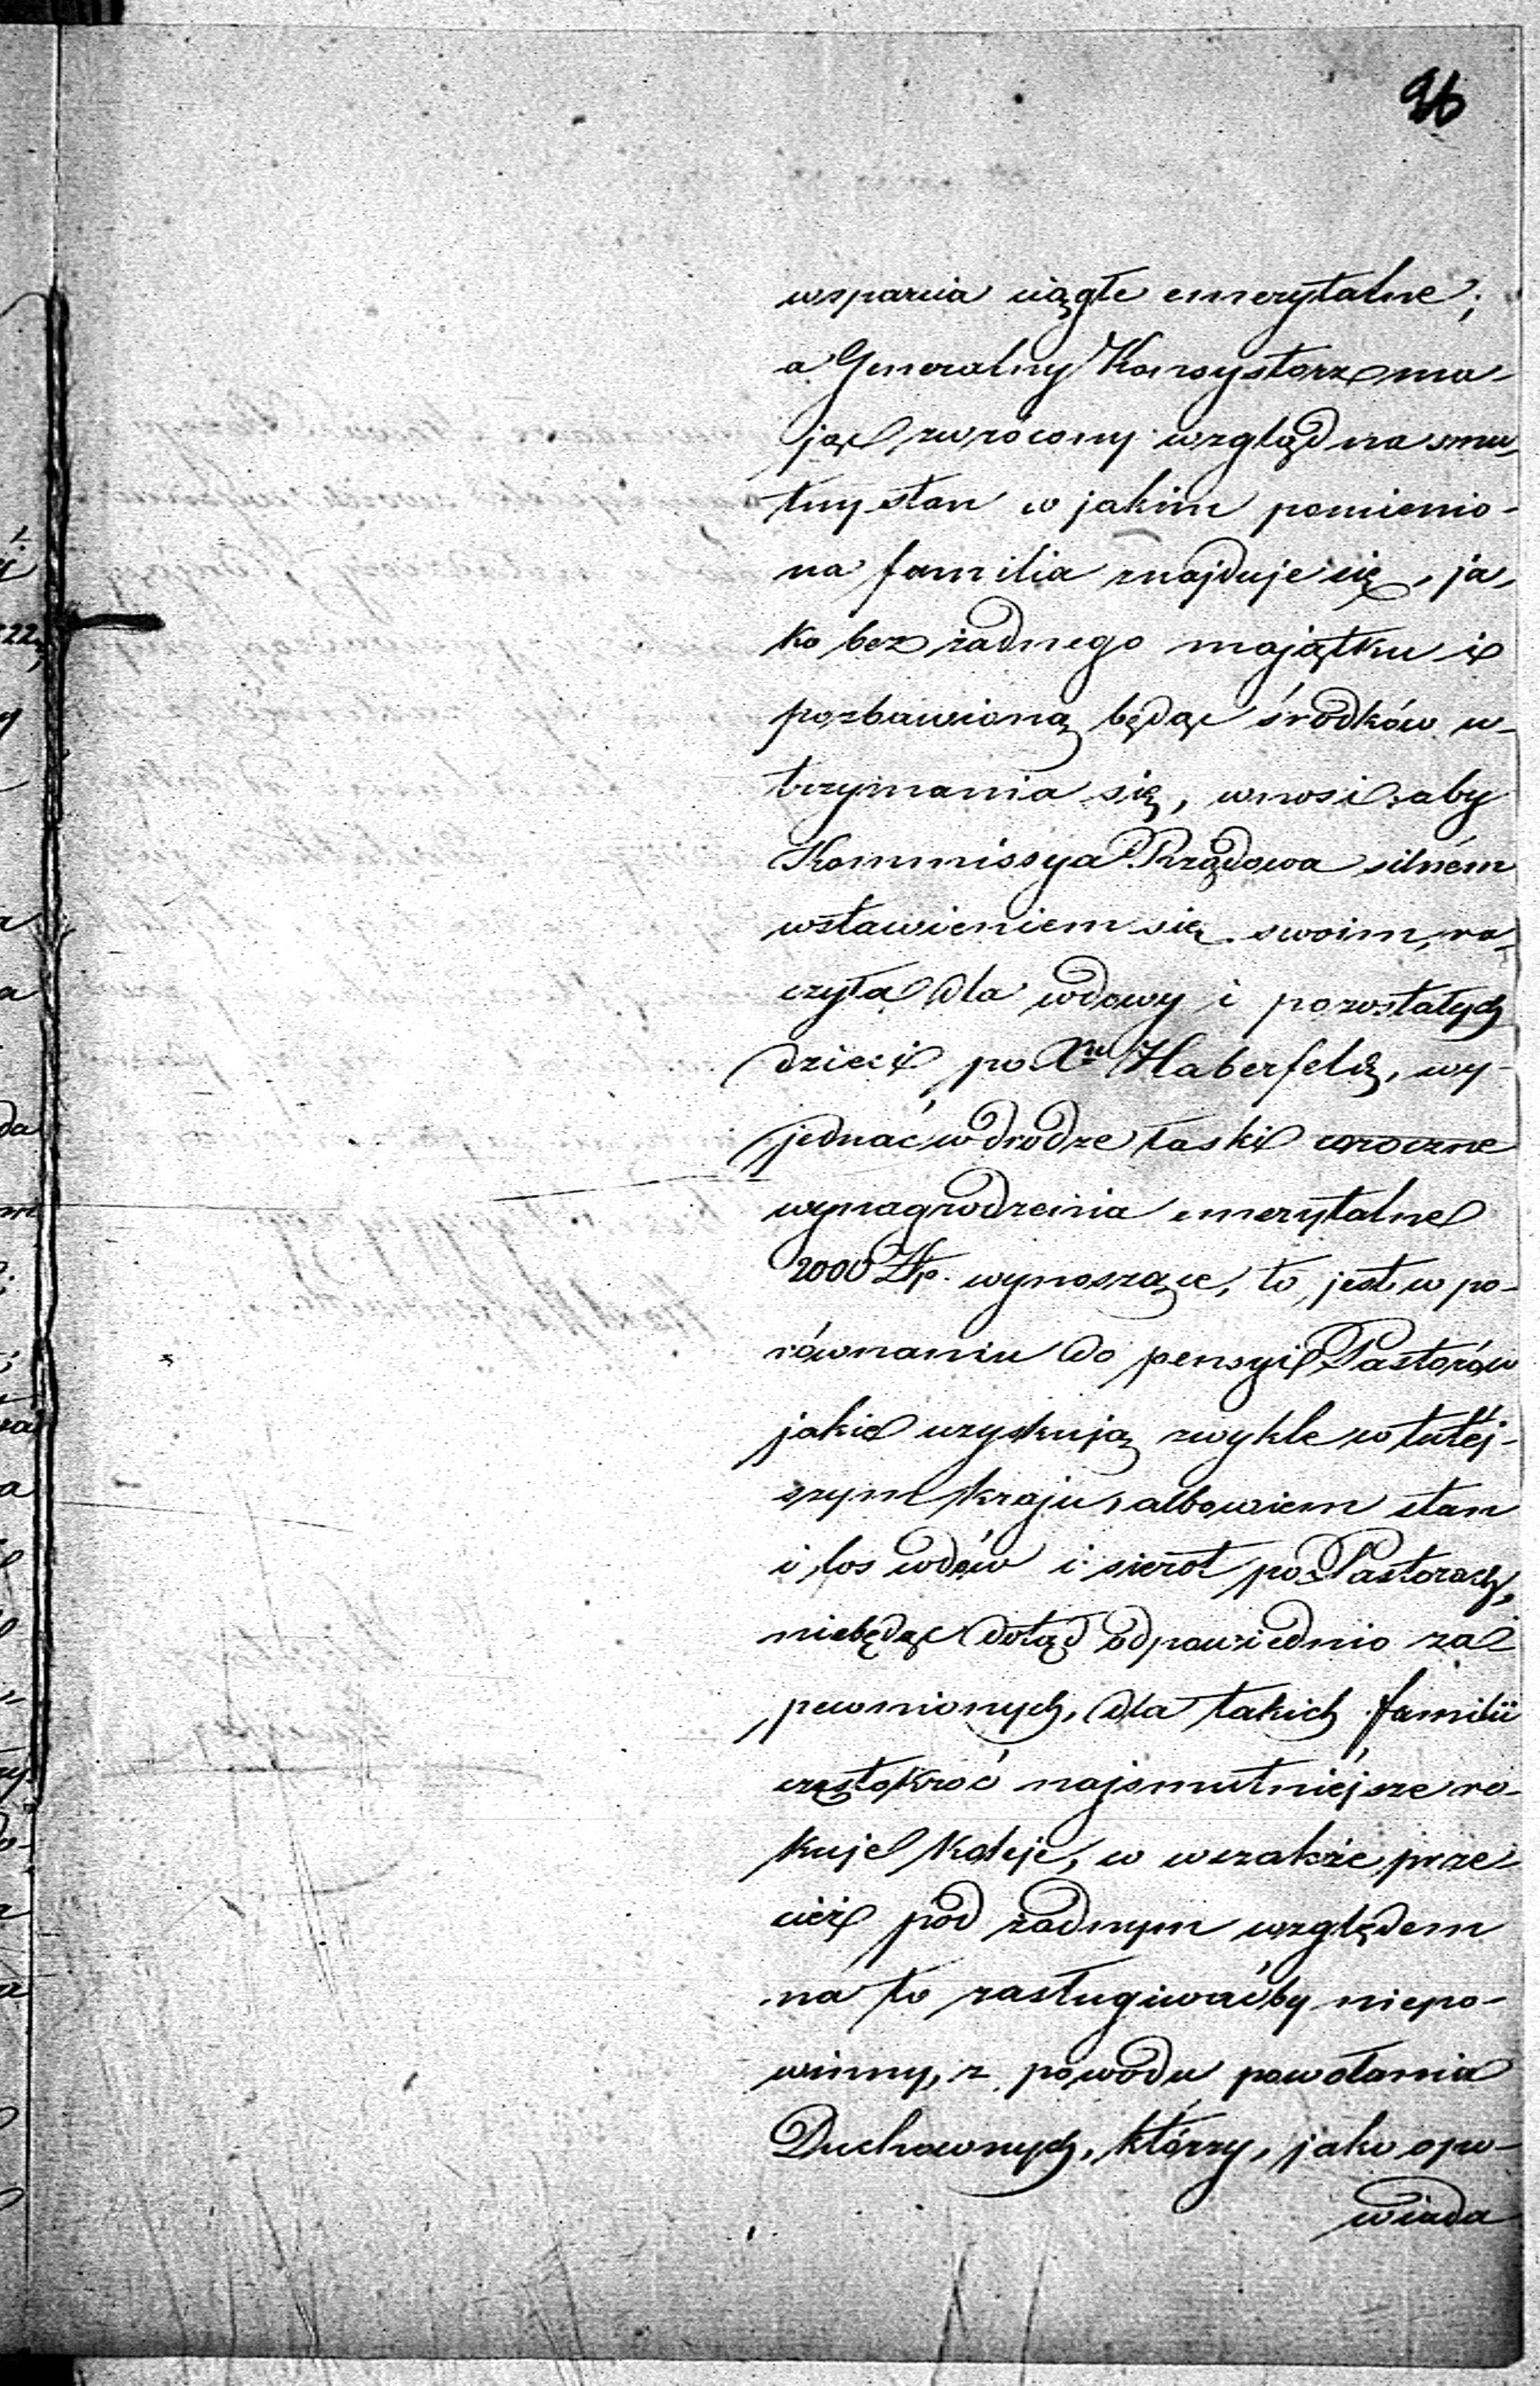 96
wsparcia ciągłe emerytalne;
a Generalny Konsystorz ma-
jąc zwrócony wzgląd na smu-
tny stan w jakim pomienio-
na familia znajduje się, ja-
ko bez żadnego majątku i
pozbawioną będąc środków u-
trzymania się, wnosi aby
Kommissya Rządowa silném
wstawieniem się swoim, ra-
czyła dla wdowy i pozostałych
dzieci po Xu Haberfeld, wy-
jednać w drodze łaski coroczne
wynagrodzenia emerytalne
2000 Złp. wynoszące, to jest w po-
równaniu do pensyi Pastorów
jakie uzyskują zwykle w tutéj-
szym kraju, albowiem stan
i los wdów i sierot po Pastorach,
niebędąc dotąd odpowiednio za-
pewnionych, dla takich familii
częstokroć najsmutniéjsze ro-
kuje koleje, w wszakże prze-
cież pod żadnym względem
na to zasługiwaćby niepo-
winny, z powodu powołania
Duchownych, którzy, jako opo-
wiada